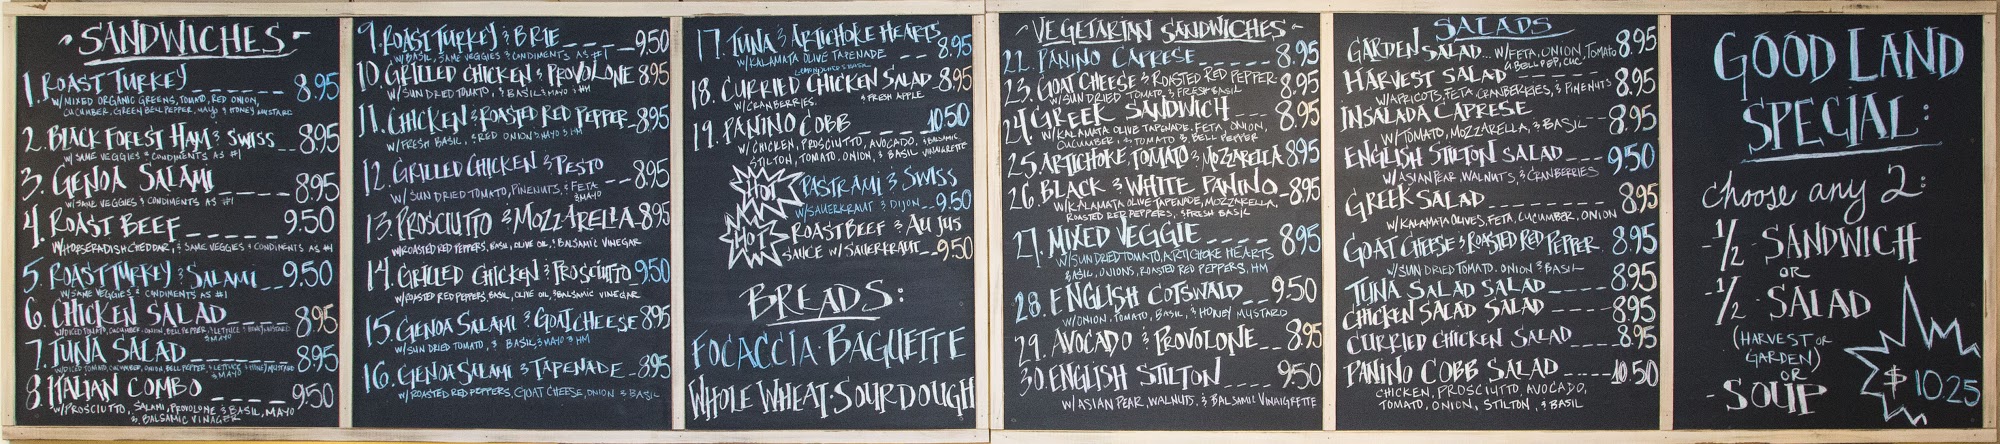 SANDWICHES
1. ROAST TURKEY 8.95
W/MIXED ORGANIC GREENS, TOMATO, RED ONION,
CUCUMBER, GREEN BELL PEPPER, MAYO & HONEY MUSTARD
2. BLACK FOREST HAM & SWISS 8.95
W/ SAME VEGGIES & CONDIMENTS AS #1
3. GENOA SALAMI 8.95
W/ SAME VEGGIES & CONDIMENTS AS #1
4. ROAST BEEF 9.50
W/HORSERADISH CHEDDAR, & SAME VEGGIES & CONDIMENTS AS #1
5. ROAST TURKEY & SALAMI 9.50
W/SAME VEGGIES & CONDIMENTS AS #1
6. CHICKEN SALAD 8.95
W/DICED TOMATO, CUCUMBER, ONION, BELL PEPPER, & LETTUCE & HONEY MUSTARD
& MAYO
7. TUNA SALAD 8.95
W/DICED TOMATO, CUCUMBER, ONION, BELL PEPPER & LETTUCE & HONEY MUSTARD
& MAYO
8. ITALIAN COMBO 9.50
W/PROSCIUTTO, SALAMI, PROVOLONE & BASIL, MAYO
& BALSAMIC VINAGER
9. ROAST TURKEY & BRIE 9.50
W/ BASIL, SAME VEGGIES & CONDIMENTS AS #1
10. GRILLED CHICKEN & PROVOLONE 8.95
W/ SUN DRIED TOMATO, & BASIL & MAYO & HM
11. CHICKEN & ROASTED RED PEPPER 8.95
W/FRESH BASIL, & RED ONION & MAYO & HM
12. GRILLED CHICKEN & PESTO 8.95
W/ SUN DRIED TOMATO, PINENUTS, & FETA
& MAYO
13. PROSCIUTTO & MOZZARELLA 8.95
W/ROASTED RED PEPPERS, BASIL, OLIVE OIL & BALSAMIC VINEGAR
14. GRILLED CHICKEN & PROSCIUTTO 9.50
W/ROASTED RED PEPPERS, BASIL, OLIVE OIL, & BALSAMIC VINEGAR
15. GENOA SALAMI & GOAT CHEESE 8.95
W/ SUN DRIED TOMATO, & BASIL, & MAYO & HM
16. GENOA SALAMI & TAPENADE 8.95
W/ ROASTED RED PEPPERS, GOAT CHEESE, ONION & BASIL
17. TUNA & ARTICHOKE HEARTS
W/KALAMATA OLIVE TAPENADE 8.95
18. CURRIED CHICKEN SALAD 8.95
W/CRANBERRIES & FRESH APPLE
19. PANINO COBB 10.50
W/ CHICKEN, PROSCIUTTO, AVOCADO, & BALSAMIC
STILTON, TOMATO, ONION, & BASIL VINAIGRETTE
HOT PASTRAMI & SWISS
W/SAUERKRAUT & DIJON 9.50
HOT ROAST BEEF & AU JUS
SAUCE W/ SAUERKRAUT 9.50
BREADS:
FOCACCIA · BAGUETTE
WHOLE WHEAT · SOURDOUGH
VEGETARIAN SANDWICHES
22. PANINO CAPRESE 8.95
23. GOAT CHEESE & ROASTED RED PEPPER 8.95
W/SUN DRIED TOMATO & FRESH BASIL
24. GREEK SANDWICH 8.95
W/KALAMATA OLIVE TAPENADE, FETA, ONION,
CUCUMBER, & TOMATO & BELL PEPPER
25. ARTICHOKE TOMATO & MOZZARELLA 8.95
26. BLACK & WHITE PANINO 8.95
W/KALAMATA OLIVE TAPENADE, MOZZARELLA,
ROASTED RED PEPPERS, & FRESH BASIL
27. MIXED VEGGIE 8.95
W/SUN DRIED TOMATO, ARTICHOKE HEARTS
BASIL, ONIONS, ROASTED RED PEPPERS, HM
28. ENGLISH COTSWALD 9.50
W/ONION, TOMATO, BASIL, & HONEY MUSTARD
29. AVOCADO & PROVOLONE 8.95
30. ENGLISH STILTON 9.50
W/ ASIAN PEAR, WALNUTS, & BALSAMIC VINAIGRETTE
SALADS
GARDEN SALAD... W/FETA, ONION, TOMATO 8.95
& BELL PEP, CUC
HARVEST SALAD 8.95
W/APRICOTS, FETA, CRANBERRIES, & PINENUTS
INSALADA CAPRESE 8.95
W/TOMATO, MOZZARELLA, & BASIL
ENGLISH STILTON SALAD 9.50
W/ASIAN PEAR, WALNUTS, & CRANBERRIES
GREEK SALAD 8.95
W/KALAMATA OLIVES, FETA, CUCUMBER, ONION
GOAT CHEESE & ROASTED RED PEPPER 8.95
W/SUN DRIED TOMATO, ONION & BASIL
TUNA SALAD SALAD 8.95
CHICKEN SALAD SALAD 8.95
CURRIED CHICKEN SALAD 8.95
PANINO COBB SALAD 10.50
CHICKEN, PROSCIUTTO, AVOCADO,
TOMATO, ONION, STILTON, & BASIL
GOOD LAND
SPECIAL:
choose any 2:
- 1/2 · SANDWICH
OR
- 1/2 · SALAD
(HARVEST OR
GARDEN)
OR
- SOUP
$ 10.25